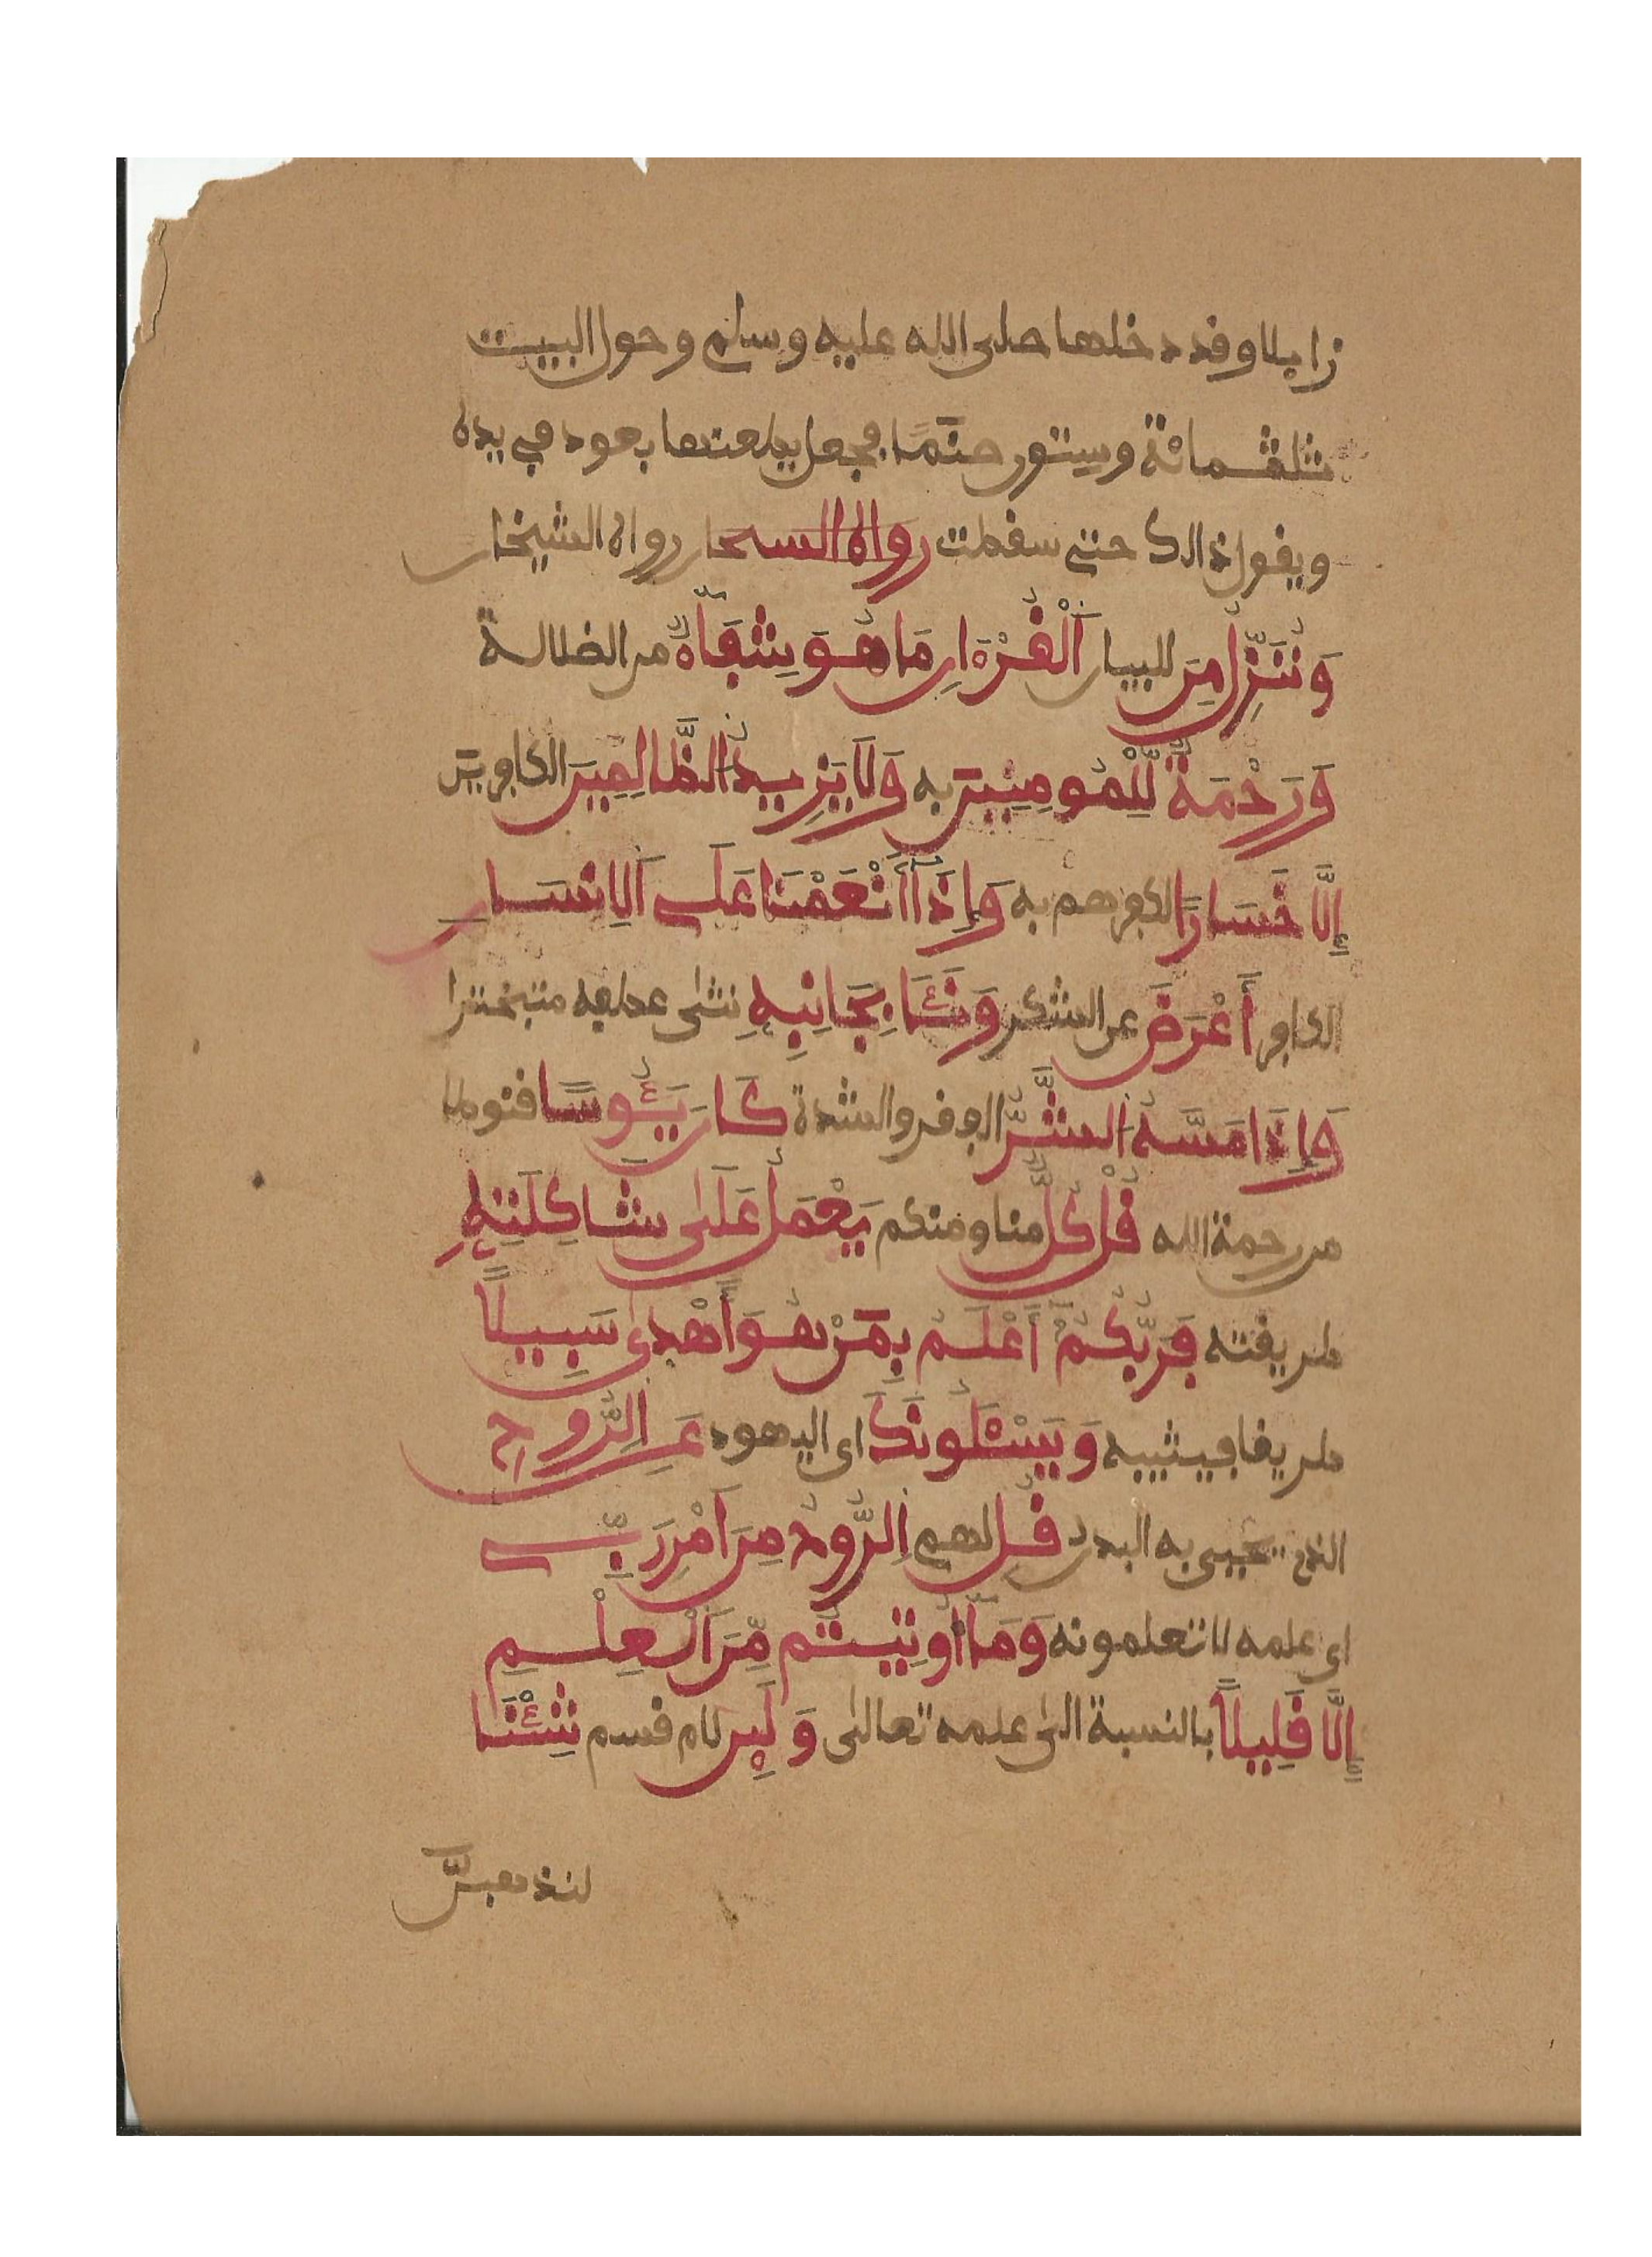 زايلا وقد دخلها صلى الله عليه وسلم وحول البيت
ثلثمائة وستون صنما فجعل يطعنها بعود في يده
ويقول ذالك حتى سقطت رواه السحان رواه الشيخان
وَنُنَزِّلُ مِنَ للبيان اَلْقُرْءَانِ مَا هُوَ شِفَآءٌ من الضلالة
وَرَحْمَةٌ لِّلْمُومِنِينَ به وَلَا يَزِيدُ الظَّالِمِينَ الكافرين
إِلَّا خَسَارًا لكفرهم به وَإِذَآ أَنْعَمْنَا عَلَى اَلِانسَانِ
الكافر أَعْرَضَ عن الشكر وَنَـَٔا بِجَانِبِهِ نثى عطفه متبخترا
وَإِذَا مَسَّهُ الشَّرُّ الفقر والشدة كَانَ يَـُٔوسًا قنوطا
من رحمة الله قُلْ كُلٌّ منا ومنكم يَعْمَلُ عَلَى شَاكِلَتِهِ
طريقته فَرَبُّكُمْ أَعْلَمُ بِمَنْ هُوَ أَهْدَى سَبِيلًا
طريقا فيثيبه وَيَسْـَٔلُونَكَ اى اليهود عَنِ الرُّوحِ
الذى يحيى به البدن قُلِ لهم الرُّوحُ مِنَ اَمْرِ رَبِّى
اى علمه لا تعلمونه وَمَآ أُوتِيتُم مِّنَ اَلْعِلْمِ
إِلَّا قَلِيلًا بالنسبة الى علمه تعالى وَلَئِن لام قسم شِئْنَا
لنذهبنَّ